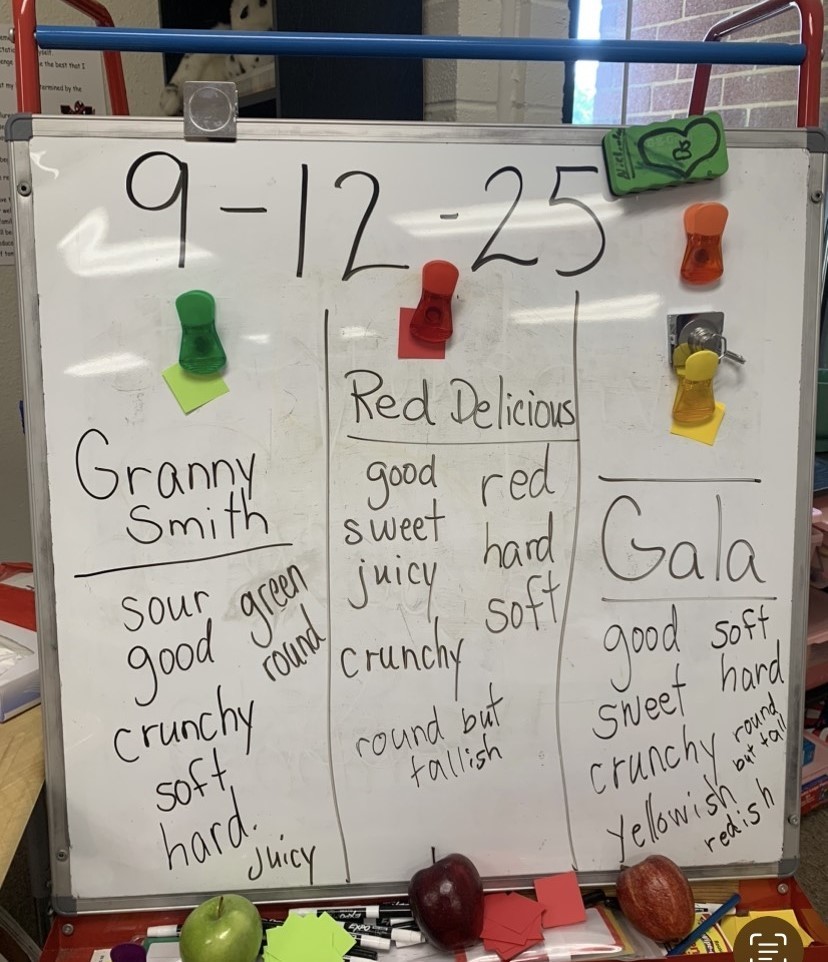 9-12-25
Granny
Smith
sour green
good round
crunchy
soft
hard.
juicy
Red Delicious
good red
sweet hard
juicy soft
crunchy
round but
tallish
Gala
good soft
sweet hard
crunchy round
but tall
yellowish
redish